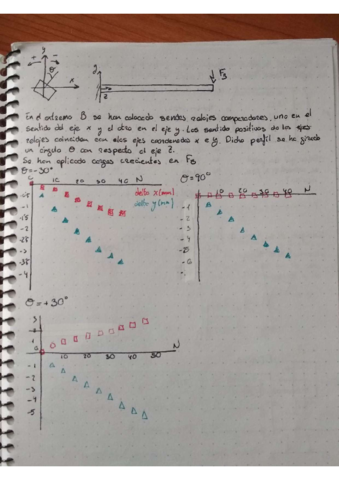 y
+
-
θ
x
z
F_B
En el extremo B se han colocado sendos relojes comparadores, uno en el
sentido del eje x y el otro en el eje y. Los sentido positivos de los
relojes coinciden con los ejes coordenados x e y. Dicho perfil se ha girado
un ángulo θ con respecto al eje z.
Se han aplicado cargas crecientes en F_B
θ=-30°
10 20 30 40 N
delta x (mm)
delta y (mm)
-1
-2
-3
-4
θ=90°
10 20 30 40 N
-1
-2
-3
-4
θ=+30°
N
10 20 30 40 50
-1
-2
-3
-4
-5